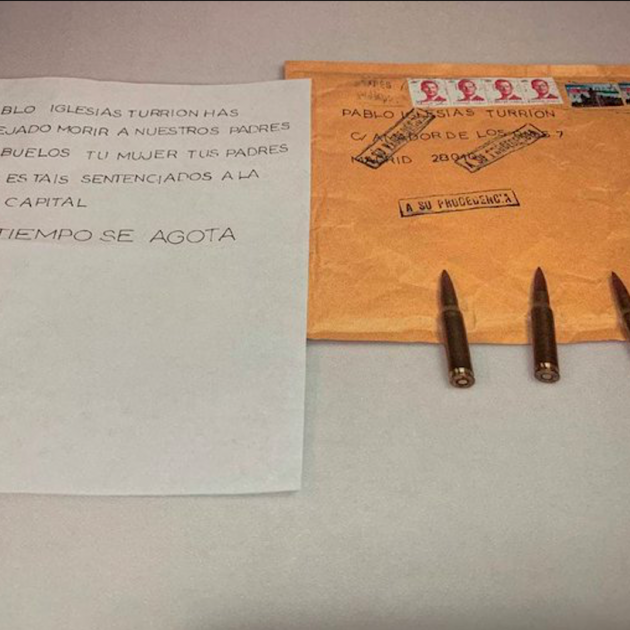 BLO IGLESIAS TURRION HAS
EJADO MORIR A NUESTROS PADRES
BUELOS TU MUJER TUS PADRES
ESTAIS SENTENCIADOS A LA
CAPITAL
TIEMPO SE AGOTA
PABLO IGLESIAS TURRION
C/ DE LOS 7
MADRID
A SU PROCEDENCIA
A SU PROCEDENCIA
A SU PROCEDENCIA